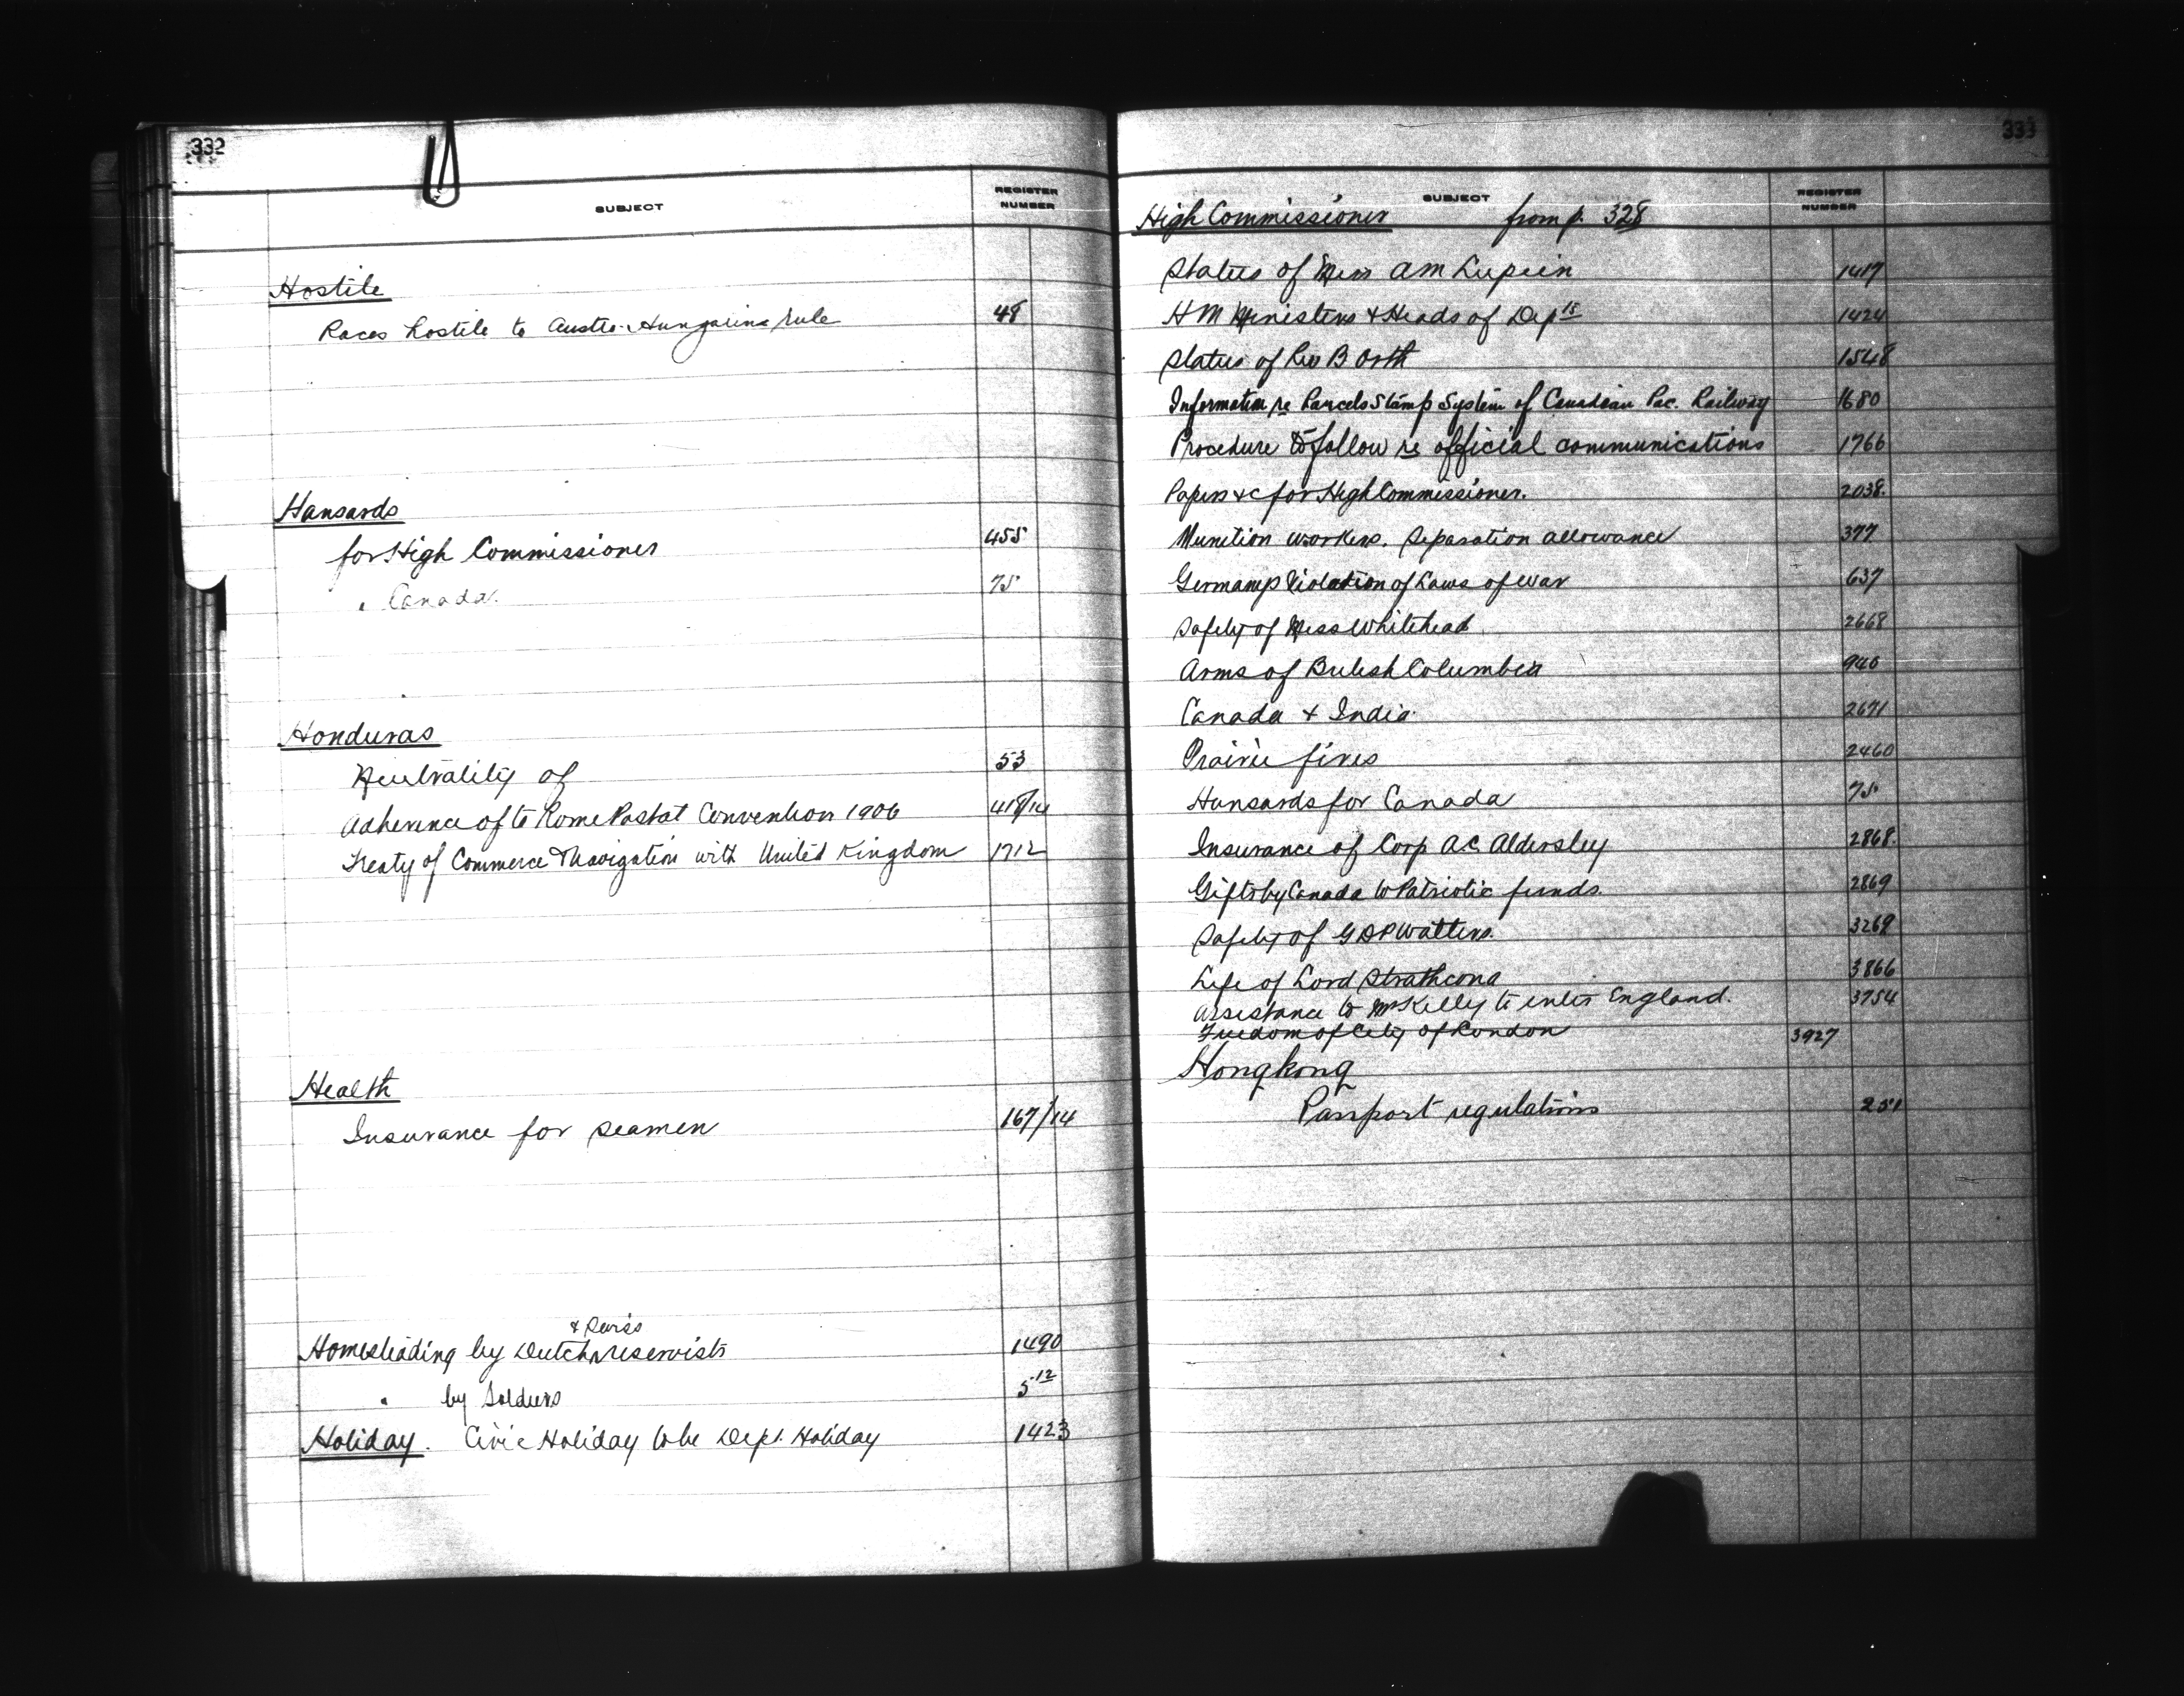 332
SUBJECT
REGISTER NUMBER
Hostile
Races hostile to Austro-Hungarian rule 48
Hansards
for High Commissioner 455
" Canada. 75
Honduras
Neutrality of 53
Adherence of to Rome Postal Convention 1906 418/14
Treaty of Commerce & Navigation with United Kingdom 1712
Health
Insurance for seamen 167/14
& Swiss
Homesteading by Dutch reservists 1490
" by Soldiers 512
Holiday. Civic Holiday to be Dept. Holiday 1423
333
SUBJECT
REGISTER NUMBER
High Commissioner from p. 328
Status of Miss A M Lupien 1417
H M Ministers & Heads of Depts 1424
Status of Leo B Orth 1548
Information re Parcels Stamp System of Canadian Pac. Railway 1680
Procedure to follow re official communications 1766
Papers &c for High Commissioner. 2038.
Munition workers. Separation allowance 377
Germany Violation of Laws of war 637
Safety of Miss Whitehead 2668
Arms of British Columbia 940
Canada & India 2671
Prairie fires 2460
Hansards for Canada 75
Insurance of Corp A C Aldersley 2868.
Gifts by Canada to Patriotic funds. 2869
Safety of G D P Watters. 3269
Life of Lord Strathcona 3866
Assistance to Mr Kelly to enter England. 3754
Freedom of City of London 3927
Hongkong
Passport regulations 251